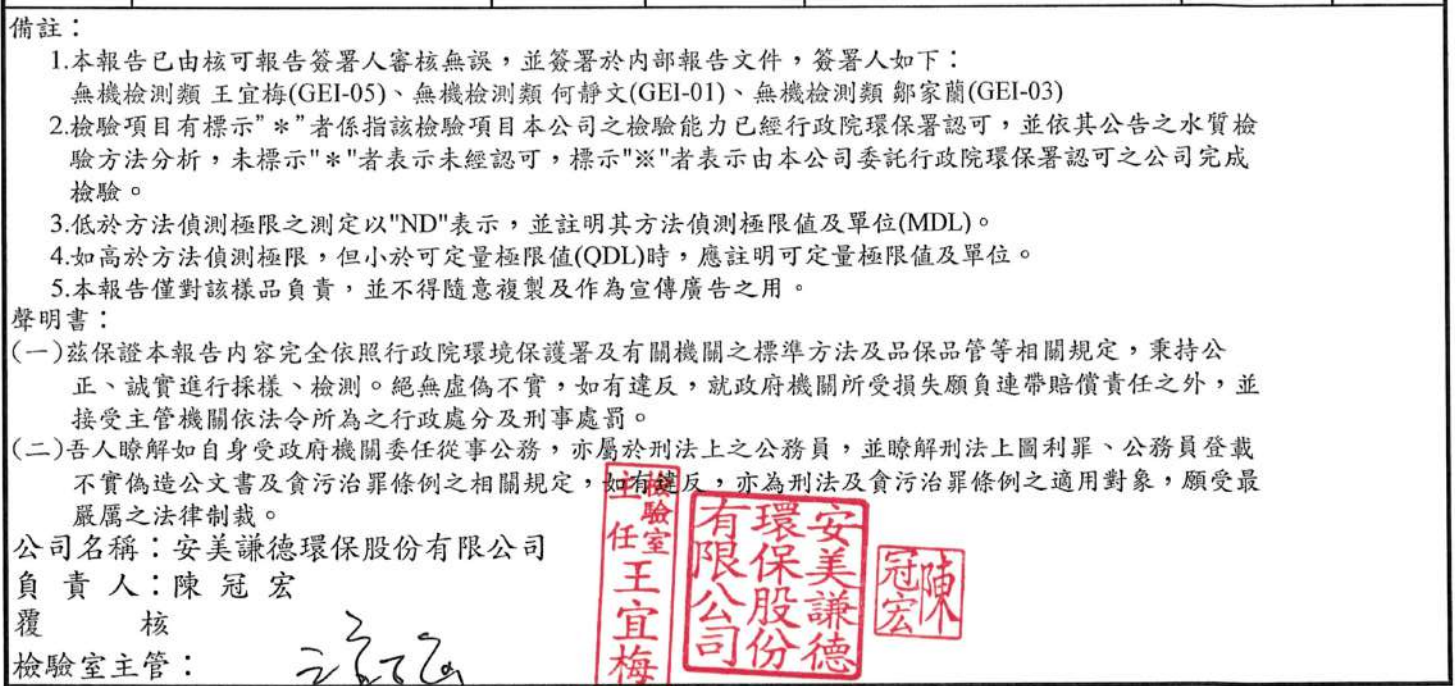 備註：
1.本報告已由核可報告簽署人審核無誤，並簽署於內部報告文件，簽署人如下：
無機檢測類 王宜梅(GEI-05)、無機檢測類 何靜文(GEI-01)、無機檢測類 鄒家蘭(GEI-03)
2.檢驗項目有標示"＊"者係指該檢驗項目本公司之檢驗能力已經行政院環保署認可，並依其公告之水質檢
驗方法分析，未標示"＊"者表示未經認可，標示"※"者表示由本公司委託行政院環保署認可之公司完成
檢驗。
3.低於方法偵測極限之測定以"ND"表示，並註明其方法偵測極限值及單位(MDL)。
4.如高於方法偵測極限，但小於可定量極限值(QDL)時，應註明可定量極限值及單位。
5.本報告僅對該樣品負責，並不得隨意複製及作為宣傳廣告之用。
聲明書：
(一)茲保證本報告內容完全依照行政院環境保護署及有關機關之標準方法及品保品管等相關規定，秉持公
正、誠實進行採樣、檢測。絕無虛偽不實，如有違反，就政府機關所受損失願負連帶賠償責任之外，並
接受主管機關依法令所為之行政處分及刑事處罰。
(二)吾人瞭解如自身受政府機關委任從事公務，亦屬於刑法上之公務員，並瞭解刑法上圖利罪、公務員登載
不實偽造公文書及貪污治罪條例之相關規定，如有違反，亦為刑法及貪污治罪條例之適用對象，願受最
嚴厲之法律制裁。
公司名稱：安美謙德環保股份有限公司
負 責 人：陳 冠 宏
覆 核
檢驗室主管：
檢驗室
主任 王宜梅
安美謙德
環保股份
有限公司
陳
冠宏